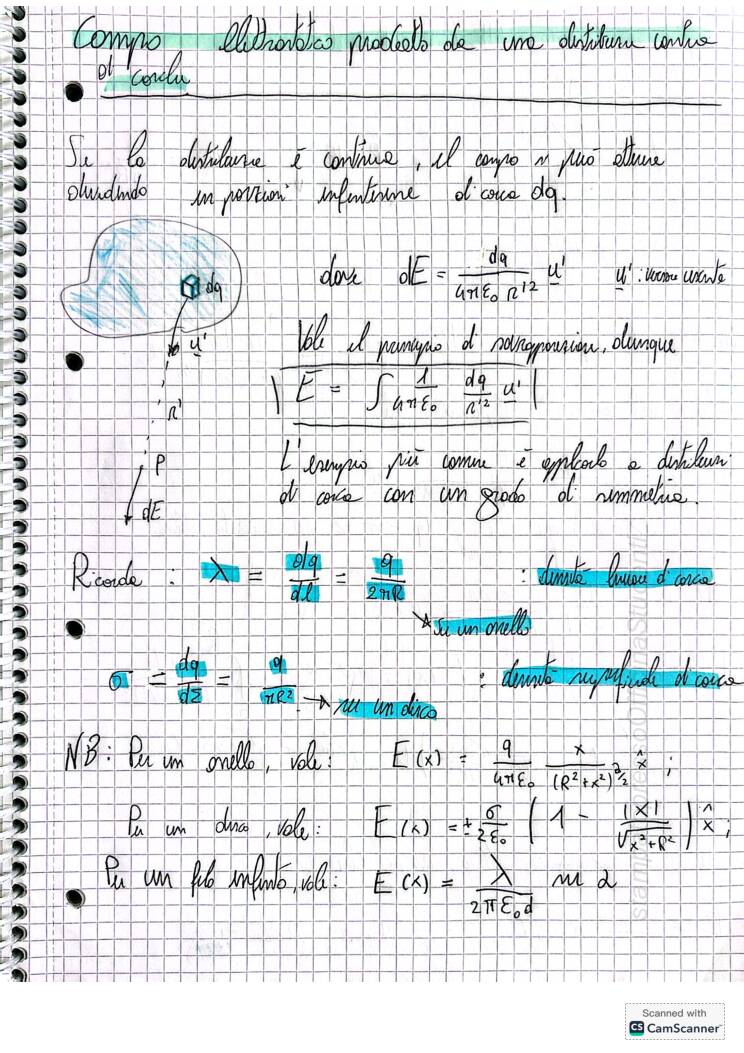 Campo elettrostatico prodotto da una distribuzione continua
di carica
Se la distribuzione è continua, il campo si può ottenere
dividendo in porzioni infinitesime di carica dq.
dq
dove dE = dq / 4πε₀ r'² u' u': versore uscente
u'
Vale il principio di sovrapposizione, dunque
E = ∫ 1/4πε₀ dq/r'² u'
r'
P
L'esempio più comune è applicarlo a distribuzioni
di carica con un grado di simmetria.
dE
Ricorda: λ = dq/dl = q/2πR : densità lineare di carica
su un anello
σ = dq/dΣ = q/πR² : densità superficiale di carica
su un disco
NB: Per un anello, vale: E(x) = q/4πε₀ x/(R²+x²)^3/2 x̂ ;
Per un disco, vale: E(x) = ± σ/2ε₀ (1 - |x|/√x²+R²) x̂ ;
Per un filo infinito, vale: E(x) = λ/2πε₀d
Scanned with
CS CamScanner